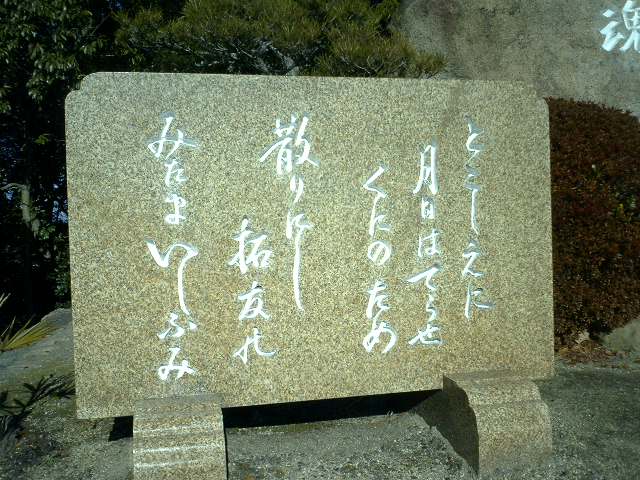 とこしえに
月日はてらせ
くにのため
散りにし
拓友の
みたまいしふみ
魂